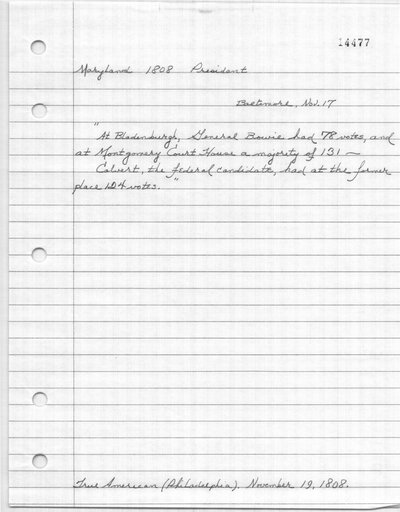 14477
Maryland 1808 President
Baltimore, Nov. 17
"At Bladenburgh, General Bowie had 78 votes, and
at Montgomery Court House a majority of 131 —
Calvert, the federal candidate, had at the former
place 124 votes."
True American (Philadelphia). November 19, 1808.